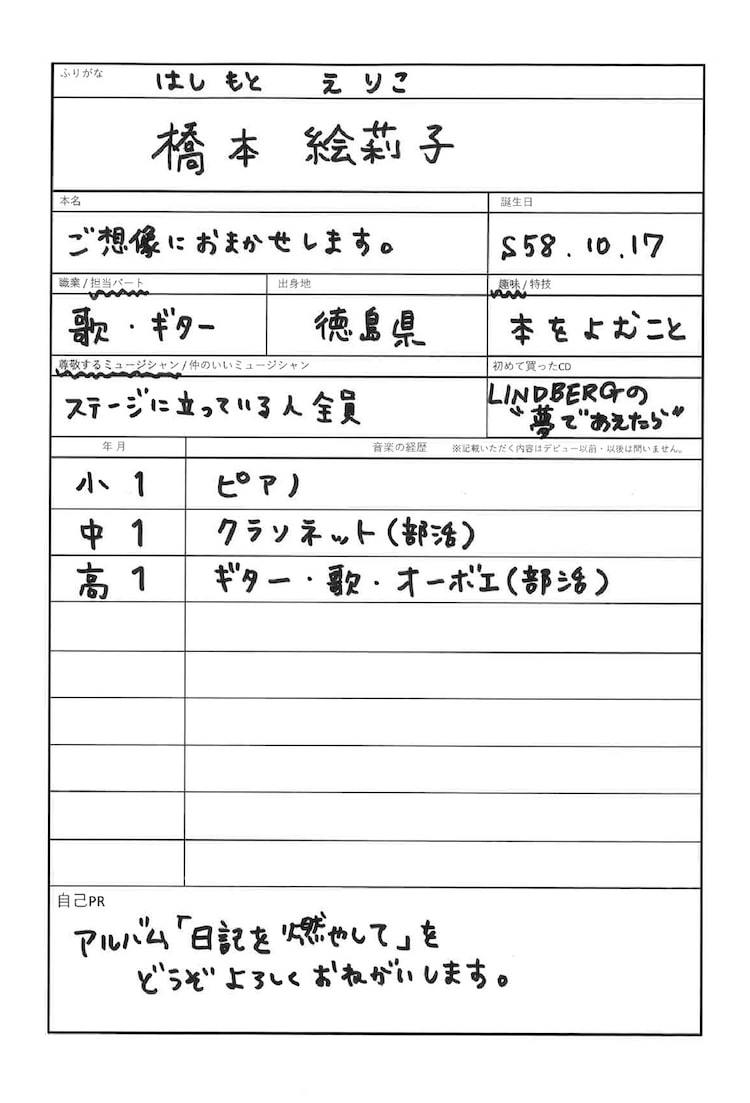 ふりがな
はしもと えりこ
橋本 絵莉子
本名
誕生日
ご想像におまかせします。
S58.10.17
職業/担当パート
出身地
趣味/特技
歌・ギター
徳島県
本をよむこと
尊敬するミュージシャン/仲のいいミュージシャン
初めて買ったCD
ステージに立っている人全員
LINDBERGの
"夢であえたら"
年月
音楽の経歴 ※記載いただく内容はデビュー以前・以後は問いません。
小1 ピアノ
中1 クラリネット(部活)
高1 ギター・歌・オーボエ(部活)
自己PR
アルバム「日記を燃やして」を
どうぞよろしくおねがいします。